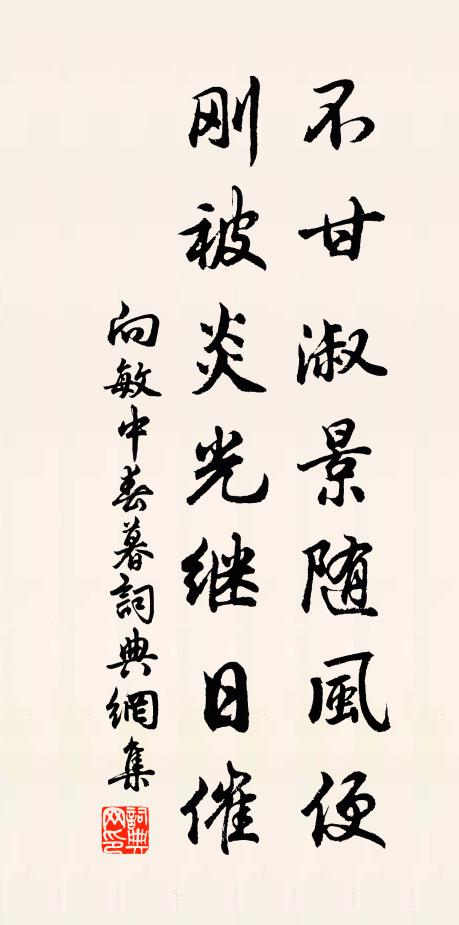 不甘淑景随風便
刚被炎光继日催
向敏中春暮詞典網集
詞典网印